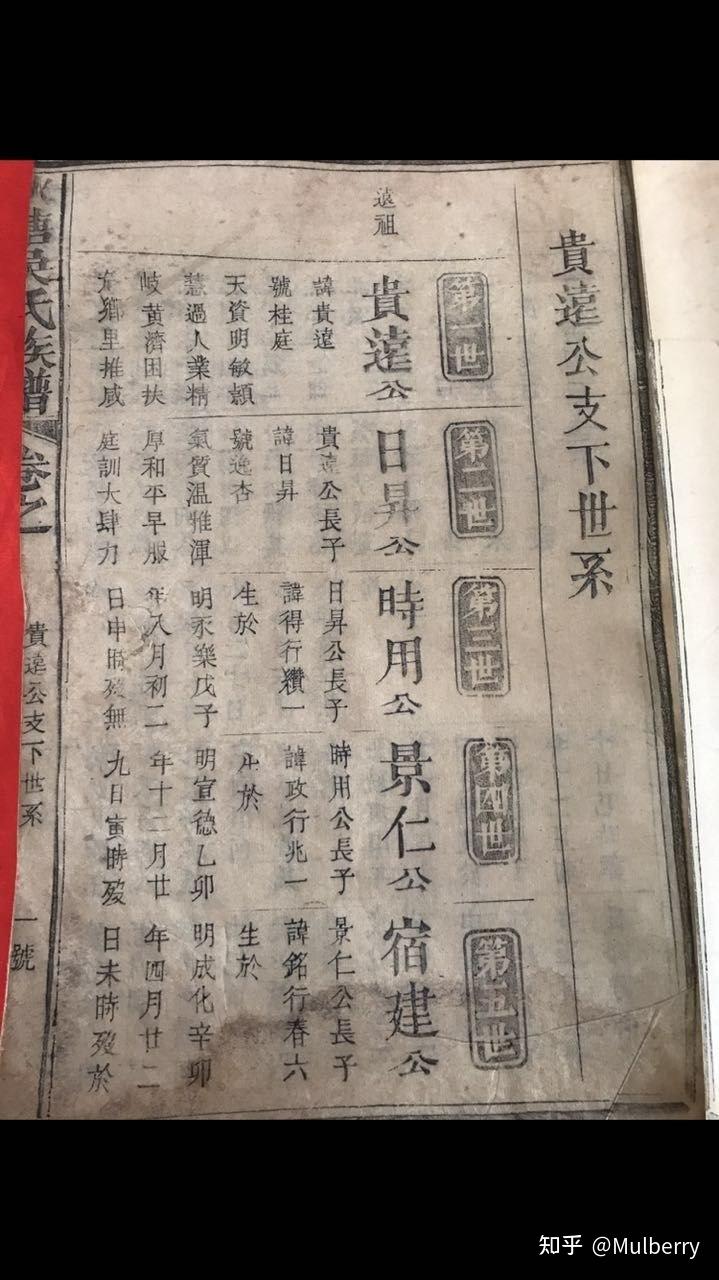 貴遠公支下世系
第一世
遠祖
貴遠公
諱貴遠
號桂庭
天資明敏穎
慧過人業精
岐黃濟困扶
危鄉里推咸
第二世
日昇公
貴遠公長子
諱日昇
號逸杏
氣質溫雅渾
厚和平早服
庭訓大肆力
第三世
時用公
日昇公長子
諱得行纘一
生於
明永樂戊子
年八月初二
日申時歿無
第四世
景仁公
時用公長子
諱政行兆一
生於
明宣德乙卯
年十二月廿
九日寅時歿
第五世
宿建公
景仁公長子
諱銘行春六
生於
明成化辛卯
年四月廿二
日未時歿於
塘吳氏族譜
卷之一
貴遠公支下世系
一號
知乎 @Mulberry